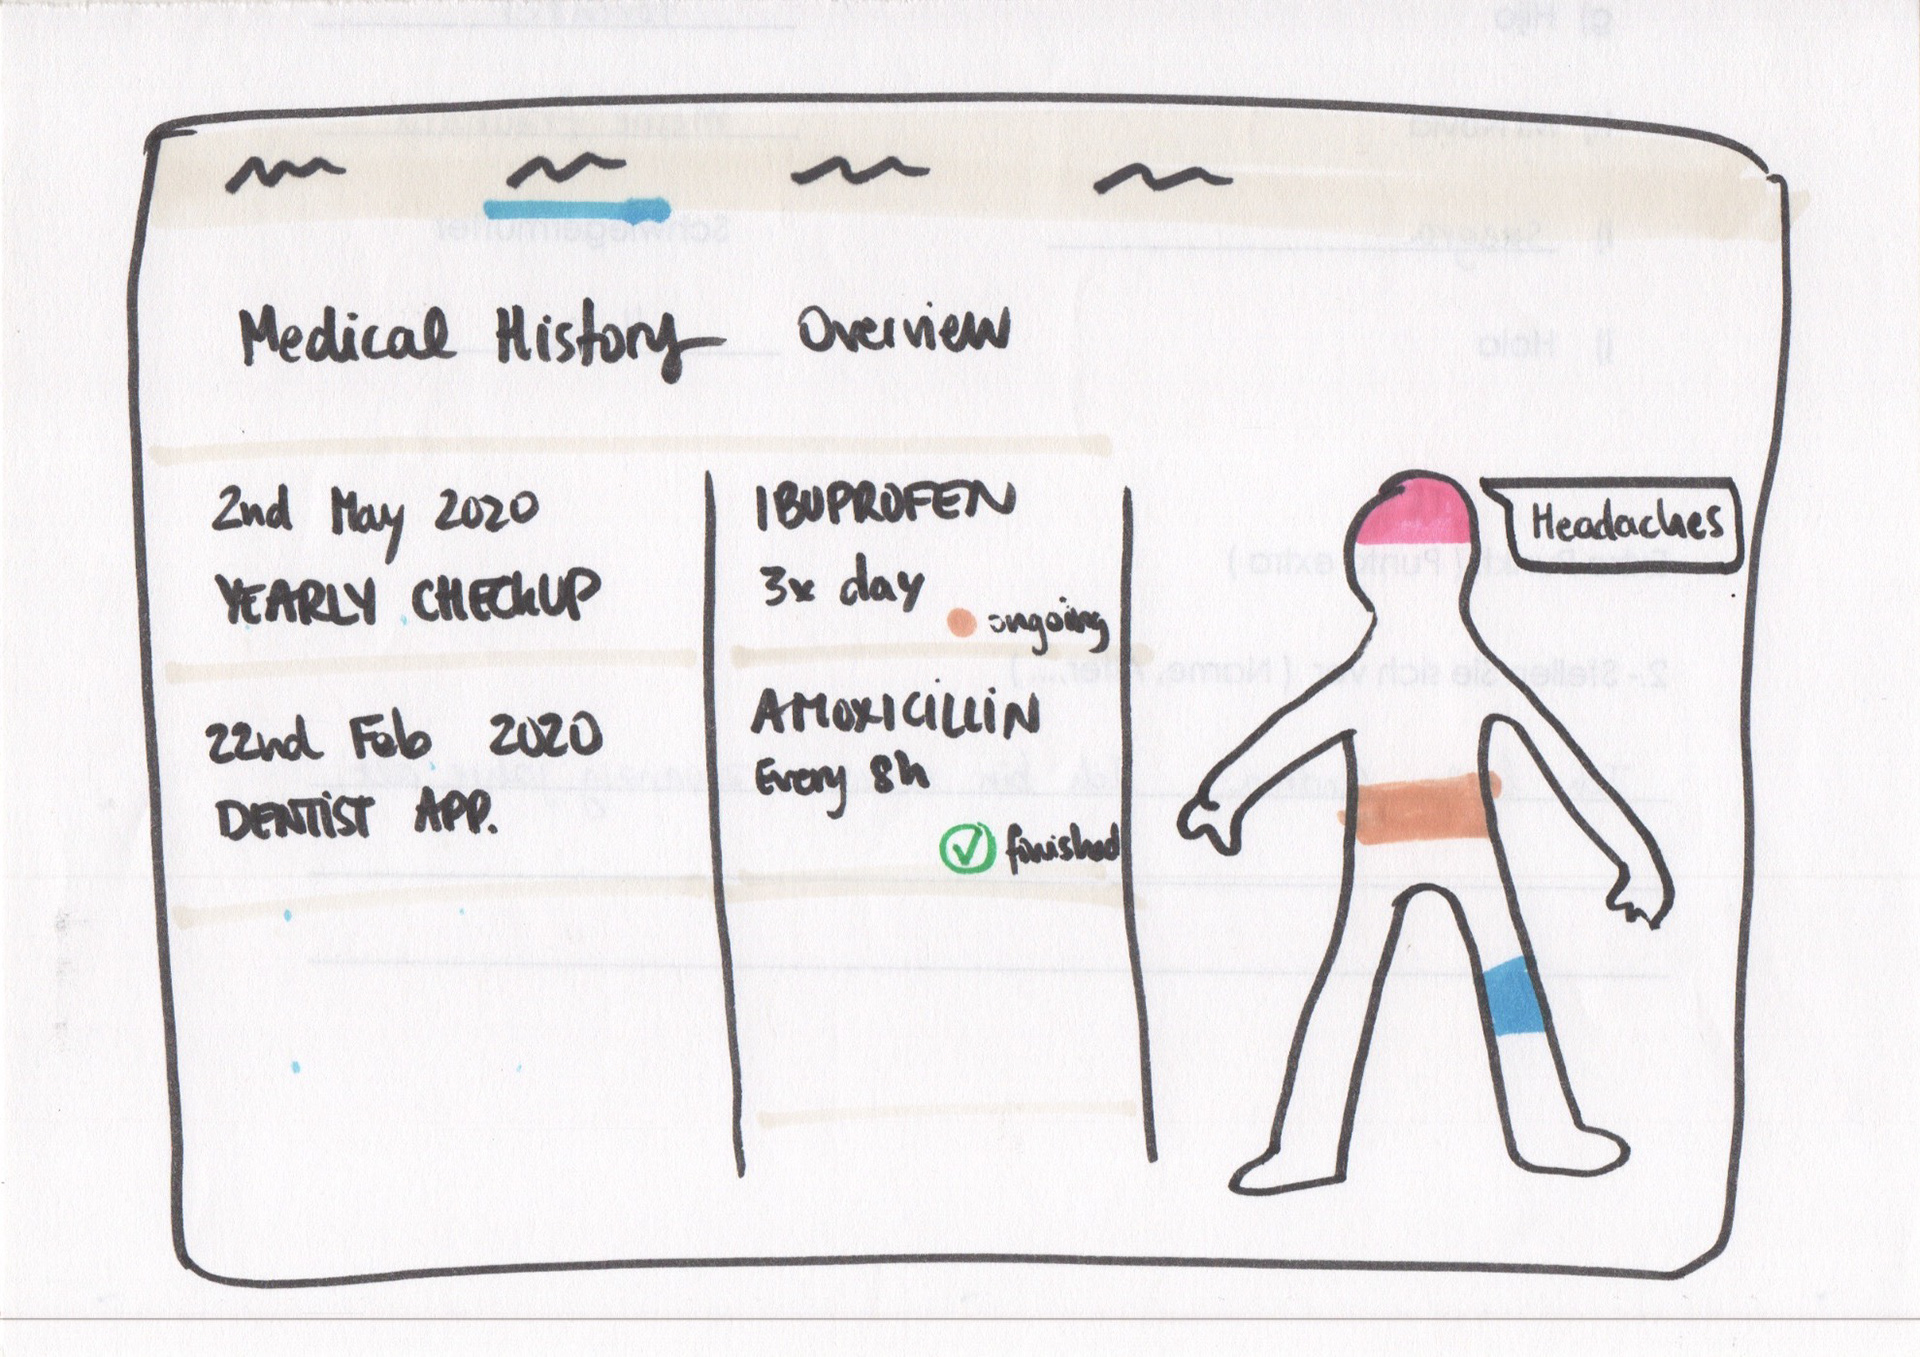 Medical History Overview
2nd May 2020
YEARLY CHECKUP
22nd Feb 2020
DENTIST APP.
IBUPROFEN
3x day
ongoing
AMOXICILLIN
Every 8h
finished
Headaches